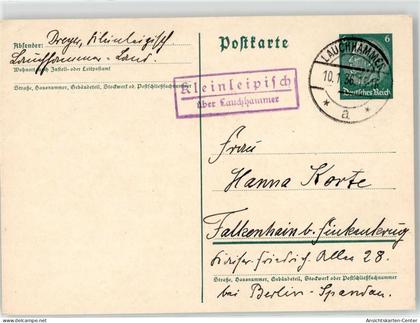 Absender: Dreyer, Kleinleipisch
Lauchhammer-Land.
Wohnort, auch Zustell- oder Leitpostamt
Straße, Hausnummer, Gebäudeteil, Stockwerk od. Postschließfachnummer
Postkarte
Kleinleipisch
über Lauchhammer
LAUCHHAMMER
a
6
Deutsches Reich
Frau
Hanna Korte
Falkenhain b. Finkenkrug
Friedrich Allee 28.
Straße, Hausnummer, Gebäudeteil, Stockwerk oder Postschließfachnummer
bei Berlin-Spandau.
Ansichtskarten-Center